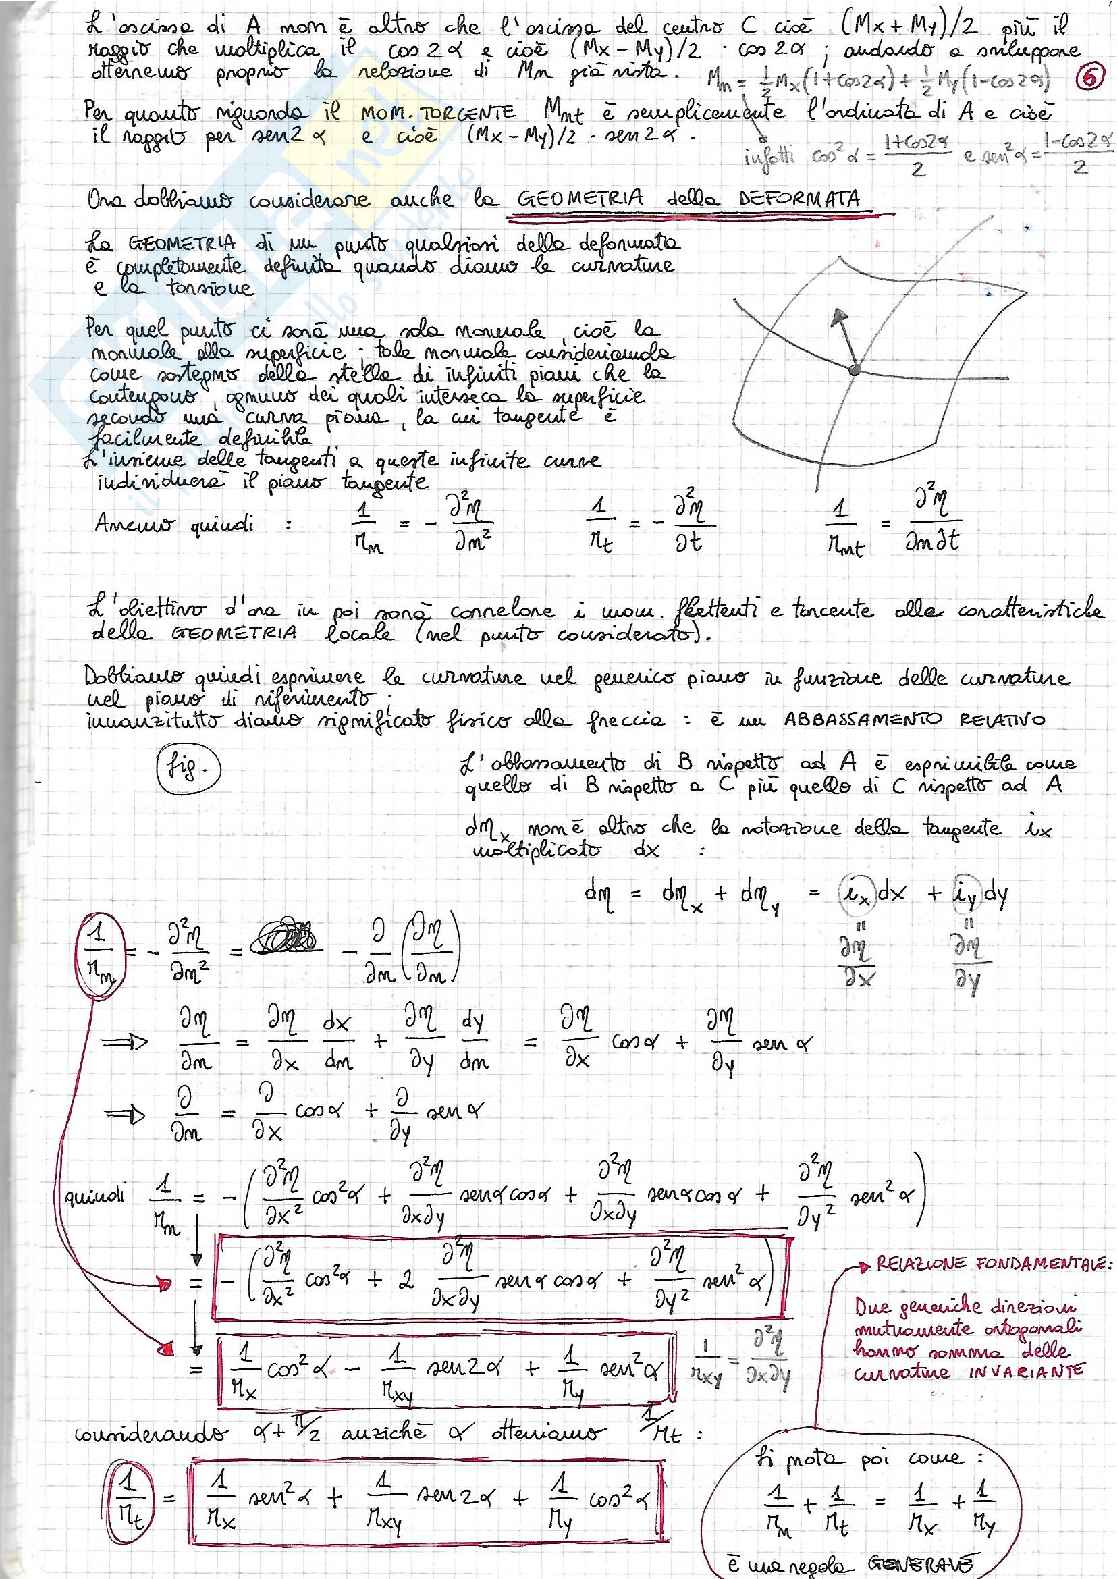 L'ascissa di A non è altro che l'ascissa del centro C cioè (Mx + My)/2 più il
raggio che moltiplica il cos 2α e cioè (Mx - My)/2 · cos 2α ; andando a sviluppare
otterremo proprio la relazione di Mn già vista. Mn = 1/2 Mx (1+cos2α) + 1/2 My (1-cos2α) 5
Per quanto riguarda il MOM. TORCENTE Mnt è semplicemente l'ordinata di A e cioè
il raggio per sen2α e cioè (Mx - My)/2 · sen2α .
infatti cos²α = (1+cos2α)/2 e sen²α = (1-cos2α)/2
Ora dobbiamo considerare anche la GEOMETRIA della DEFORMATA
La GEOMETRIA di un punto qualsiasi della deformata
è completamente definita quando diamo le curvature
e la torsione
Per quel punto ci sarà una sola normale, cioè la
normale alla superficie ; tale normale considerando
come sostegno della stella di infiniti piani che la
contengono, ognuno dei quali interseca la superficie
secondo una curva piana, la cui tangente è
facilmente definibile
L'insieme delle tangenti a queste infinite curve
individuerà il piano tangente
Avremo quindi : 1/rn = - ∂²η/∂n² 1/rt = - ∂²η/∂t 1/rnt = ∂²η/∂n∂t
L'obiettivo d'ora in poi sarà correlare i mom. flettenti e torcente alle caratteristiche
della GEOMETRIA locale (nel punto considerato).
Dobbiamo quindi esprimere le curvature nel generico piano in funzione delle curvature
nel piano di riferimento ;
innanzitutto diamo significato fisico alla freccia : è un ABBASSAMENTO RELATIVO
fig.
L'abbassamento di B rispetto ad A è esprimibile come
quello di B rispetto a C più quello di C rispetto ad A
dηx non è altro che la rotazione della tangente ix
moltiplicato dx :
dη = dηx + dηy = ix dx + iy dy
= =
∂η/∂x ∂η/∂y
1/rn = - ∂²η/∂n² = - ∂/∂n (∂η/∂n)
⇒ ∂η/∂n = ∂η/∂x dx/dn + ∂η/∂y dy/dn = ∂η/∂x cosα + ∂η/∂y sen α
⇒ ∂/∂n = ∂/∂x cosα + ∂/∂y senα
quindi 1/rn = - (∂²η/∂x² cos²α + ∂²η/∂x∂y senα cosα + ∂²η/∂x∂y senα cosα + ∂²η/∂y² sen²α)
= - (∂²η/∂x² cos²α + 2 ∂²η/∂x∂y senα cosα + ∂²η/∂y² sen²α)
= 1/rx cos²α - 1/rxy sen2α + 1/ry sen²α 1/rxy = ∂²η/∂x∂y
RELAZIONE FONDAMENTALE:
Due generiche direzioni
mutuamente ortogonali
hanno somma delle
curvature INVARIANTE
considerando α+π/2 anziché α otteniamo 1/rt :
1/rt = 1/rx sen²α + 1/rxy sen2α + 1/ry cos²α
Si nota poi come :
1/rn + 1/rt = 1/rx + 1/ry
è una regola GENERALE